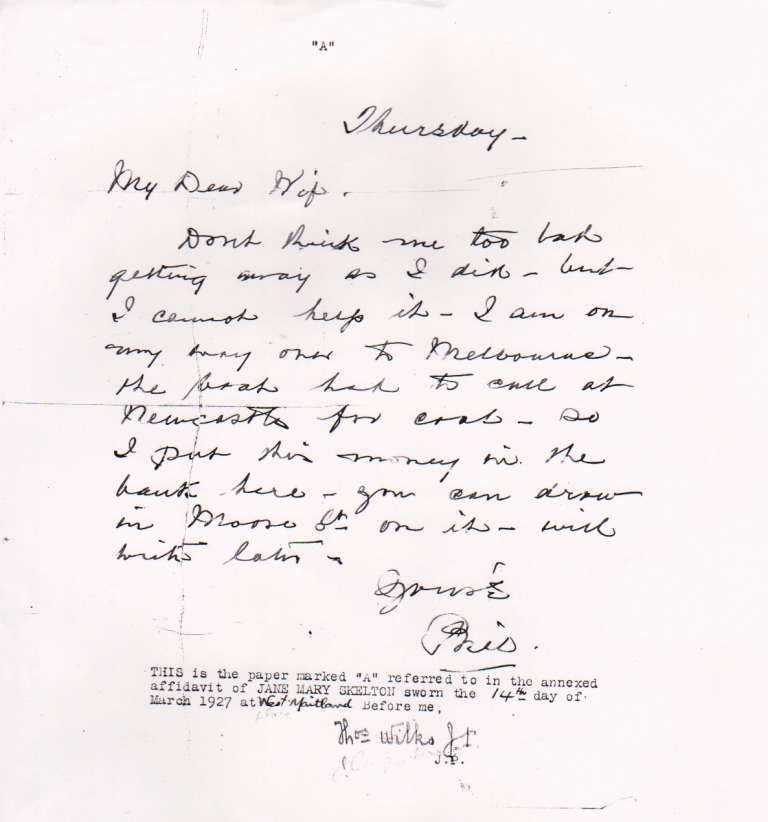 "A"
Thursday -
My Dear Wife.
Dont think me too bad
getting away as I did - but -
I cannot help it - I am on
my way over to Melbourne -
the boat had to call at
Newcastle for coal - so
I put this money in the
bank here - you can draw
in Moore St on it - will
write later -
Yours &
Bill.
THIS is the paper marked "A" referred to in the annexed
affidavit of JANE MARY SKELTON sworn the 14th day of
March 1927 at West Maitland Before me,
Thos Wilks
J.P.